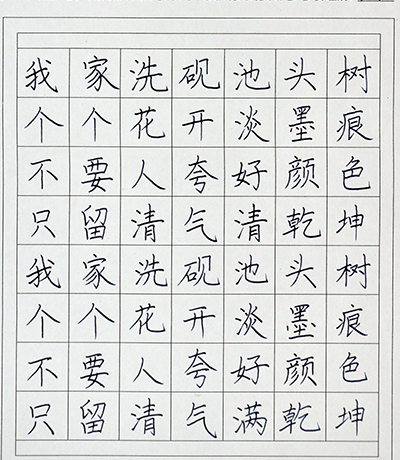 我家洗砚池头树
个个花开淡墨痕
不要人夸好颜色
只留清气清乾坤
我家洗砚池头树
个个花开淡墨痕
不要人夸好颜色
只留清气满乾坤